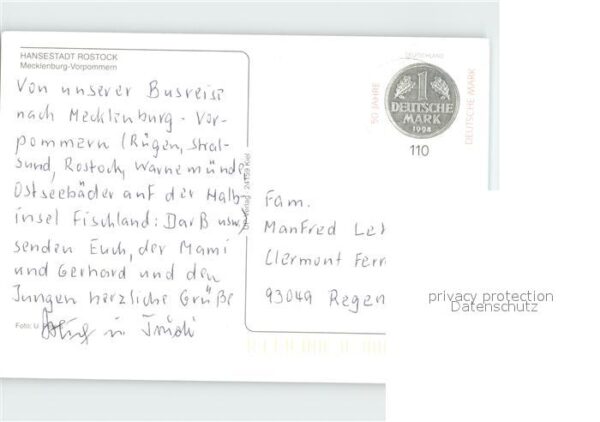 HANSESTADT ROSTOCK
Mecklenburg-Vorpommern
Von unserer Busreise
nach Mecklenburg-Vor-
pommern (Rügen, Stral-
sund, Rostock, Warnemünde
Ostseebäder auf der Halb-
insel Fischland: Darß usw)
senden Euch, der Mami
und Gerhard und den
Jungen herzliche Grüße
Foto: U
DEUTSCHLAND
50 JAHRE
DEUTSCHE MARK
1
DEUTSCHE
MARK
1998
110
24159 Kiel
Fam.
Manfred Le
Clermont Ferr
93049 Regen
privacy protection
Datenschutz